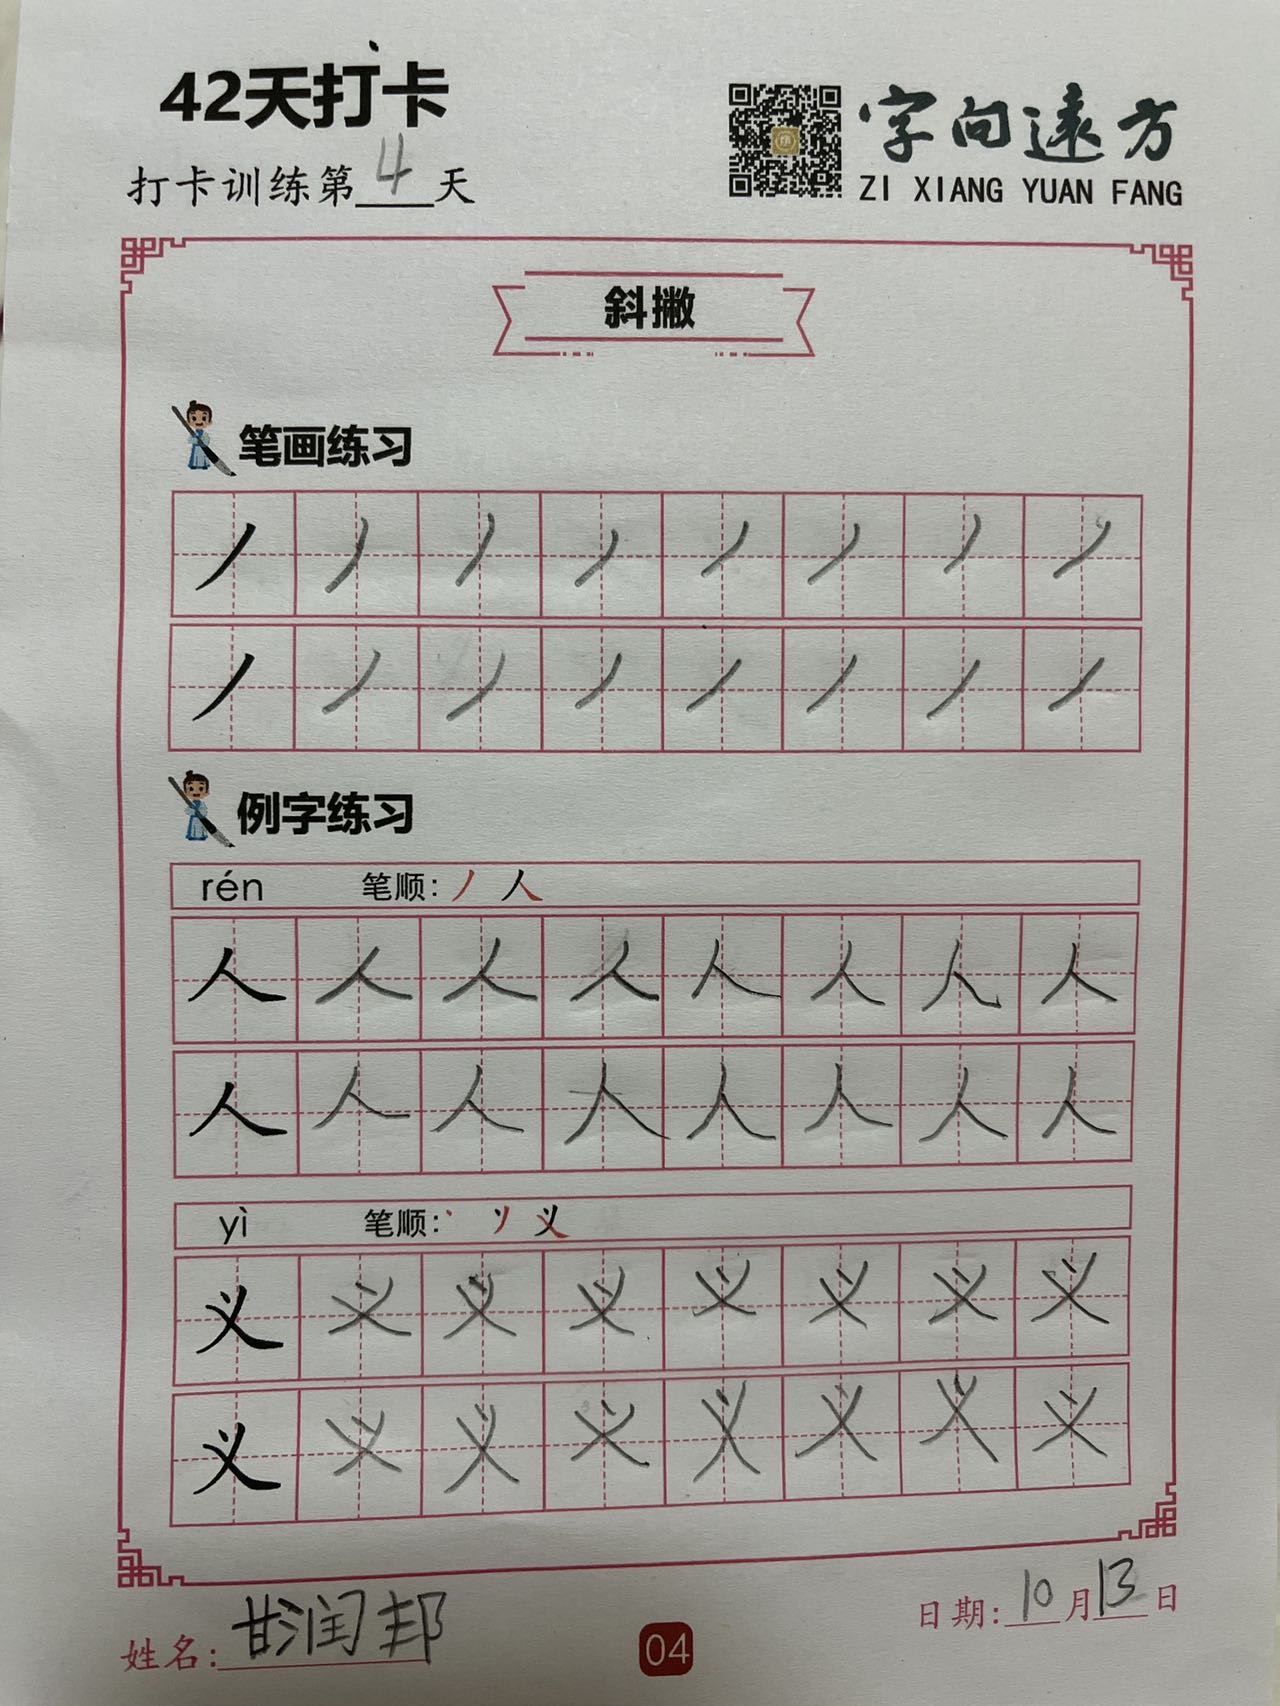 42天打卡
字向遠方
打卡训练第4天
ZI XIANG YUAN FANG
斜撇
笔画练习
丿丿丿丿丿丿丿丿
丿丿丿丿丿丿丿丿
例字练习
rén 笔顺:丿 人
人人人人人人人人
人人人人人人人人
yì 笔顺:丶 丷 义
义义义义义义义义
义义义义义义义义
姓名:甘润邦
04
日期:10月13日